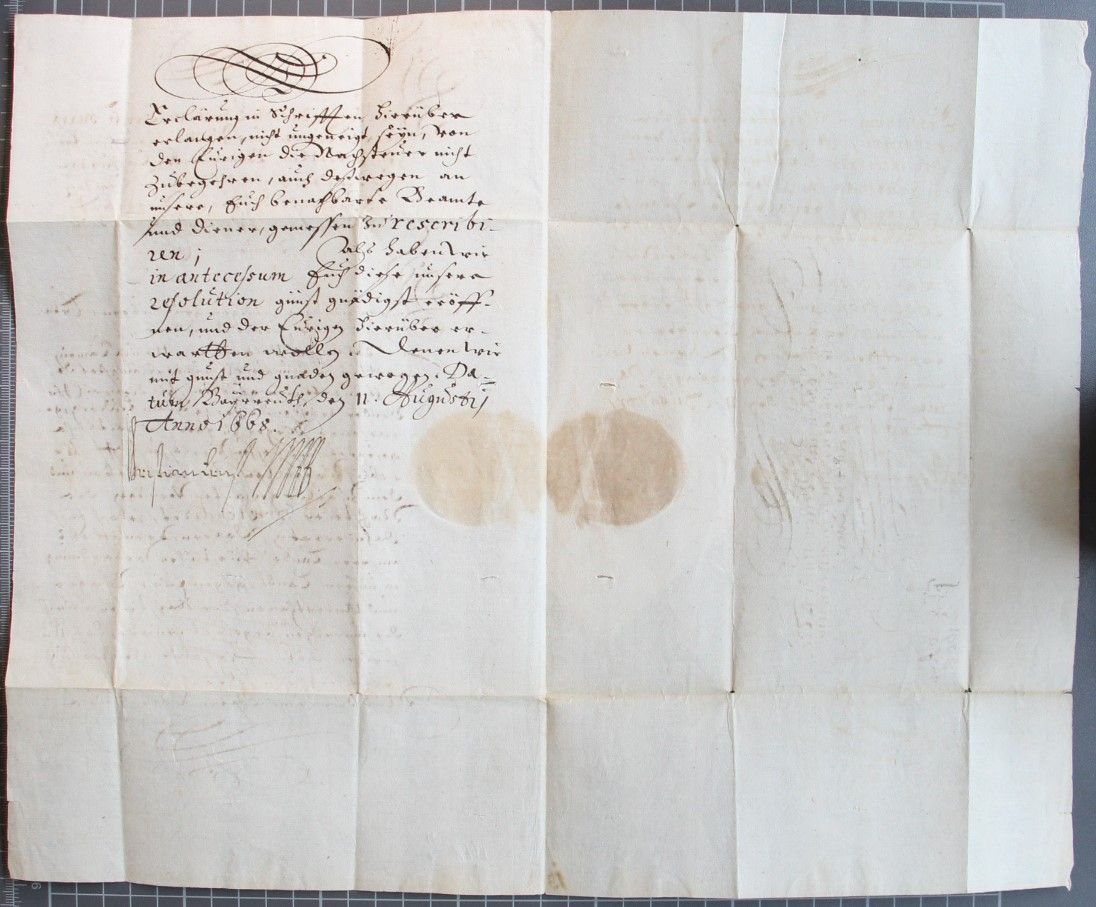 Erclärung in Schrifften hierüber
erlangen, nicht ungeneigt seyn, von
den Eurigen die Nachsteuer nicht
Zubegehren, auch deßwegen an
unsere, Euch benachbarte Beamte
und diener, gemessen zu rescribi-
ren; als haben wir
in antecessum Euch diese unsere
resolution günst gnädigst eröff-
nen, und der Eurigen hierüber er-
wartten wollen. Denen wir
mit gunst und gnaden gewogen. Da-
tum Bayrreuth, den 11. Augusti,
Anno 1668.